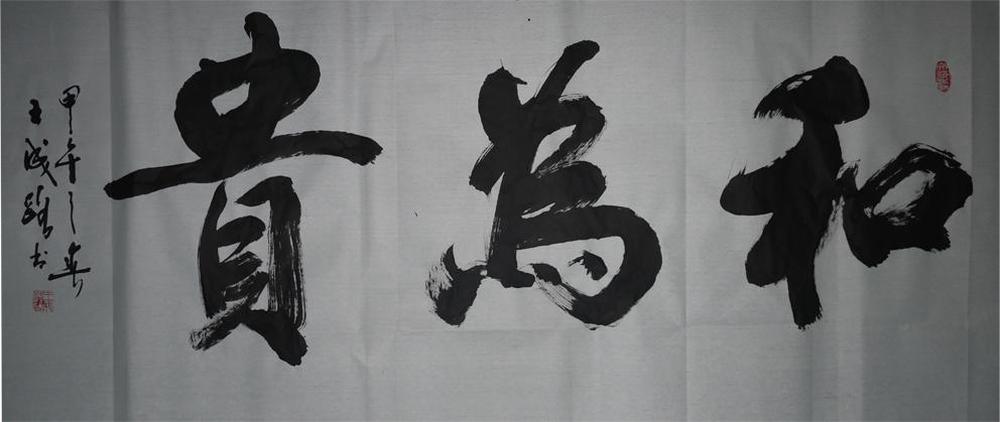 和為貴
甲午之春
王成躍书